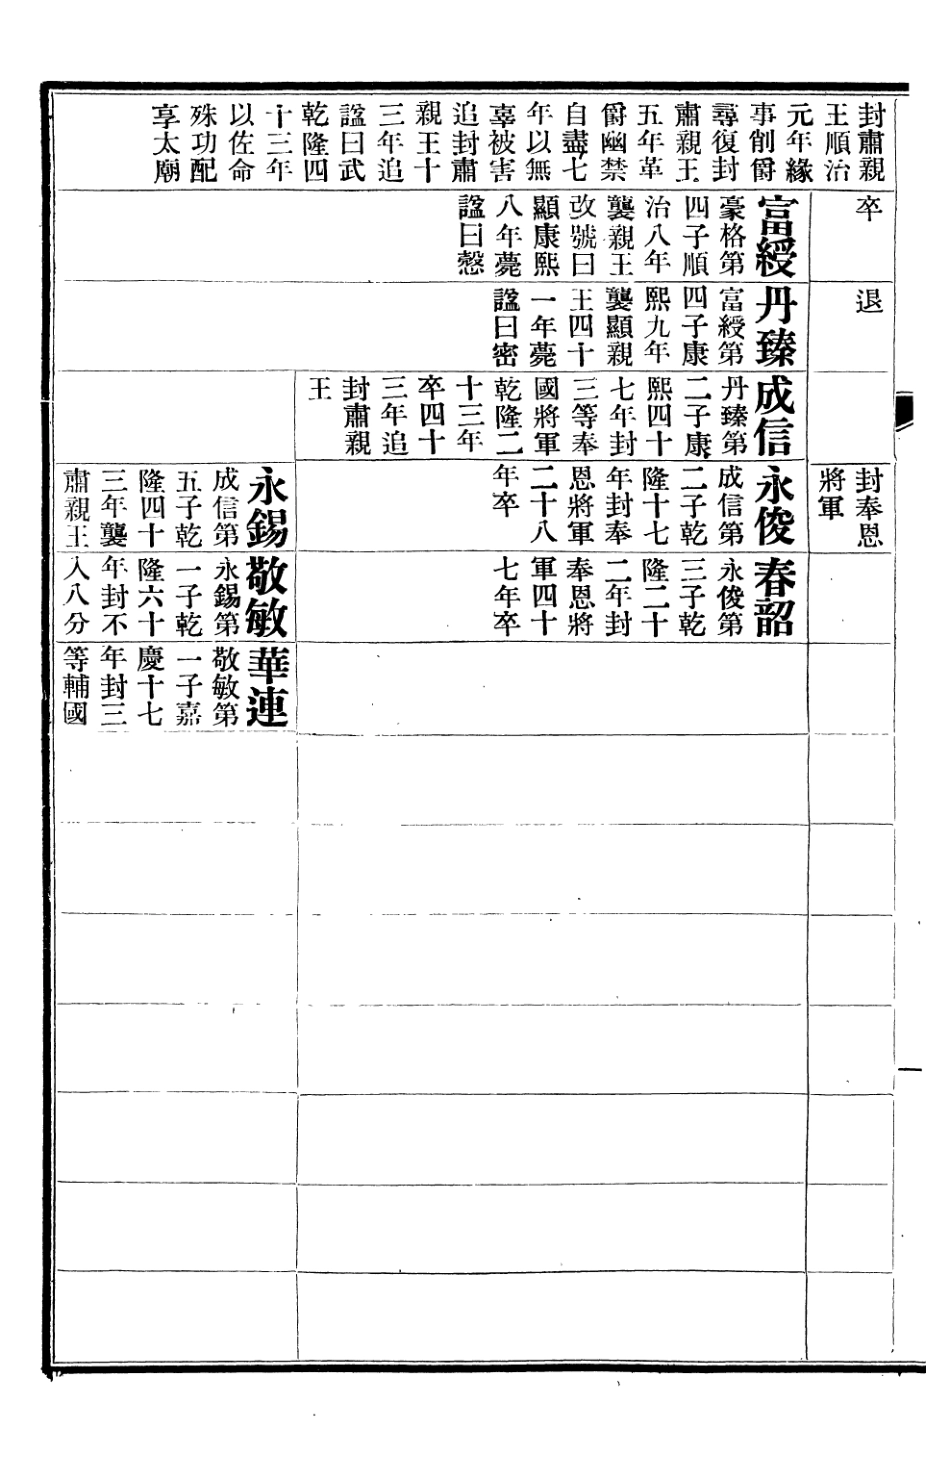 封肅親
王順治
元年緣
事削爵
尋復封
肅親王
五年革
爵幽禁
自盡七
年以無
辜被害
追封肅
親王十
三年追
諡曰武
乾隆四
十三年
以佐命
殊功配
享太廟
卒
富綬
豪格第
四子順
治八年
襲親王
改號曰
顯康熙
八年薨
諡曰慤
退
丹臻
富綬第
四子康
熙九年
襲顯親
王四十
一年薨
諡曰密
成信
丹臻第
二子康
熙四十
七年封
三等奉
國將軍
乾隆二
十三年
卒四十
三年追
封肅親
王
封奉恩
將軍
永俊
成信第
二子乾
隆十七
年封奉
恩將軍
二十八
年卒
永錫
成信第
五子乾
隆四十
三年襲
肅親王
春韶
永俊第
三子乾
隆二十
二年封
奉恩將
軍四十
七年卒
敬敏
永錫第
一子乾
隆六十
年封不
入八分
華連
敬敏第
一子嘉
慶十七
年封三
等輔國
一